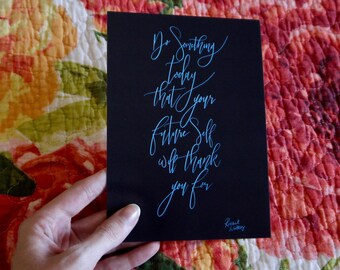 Do Something
today
that your
future Self
will thank
you for